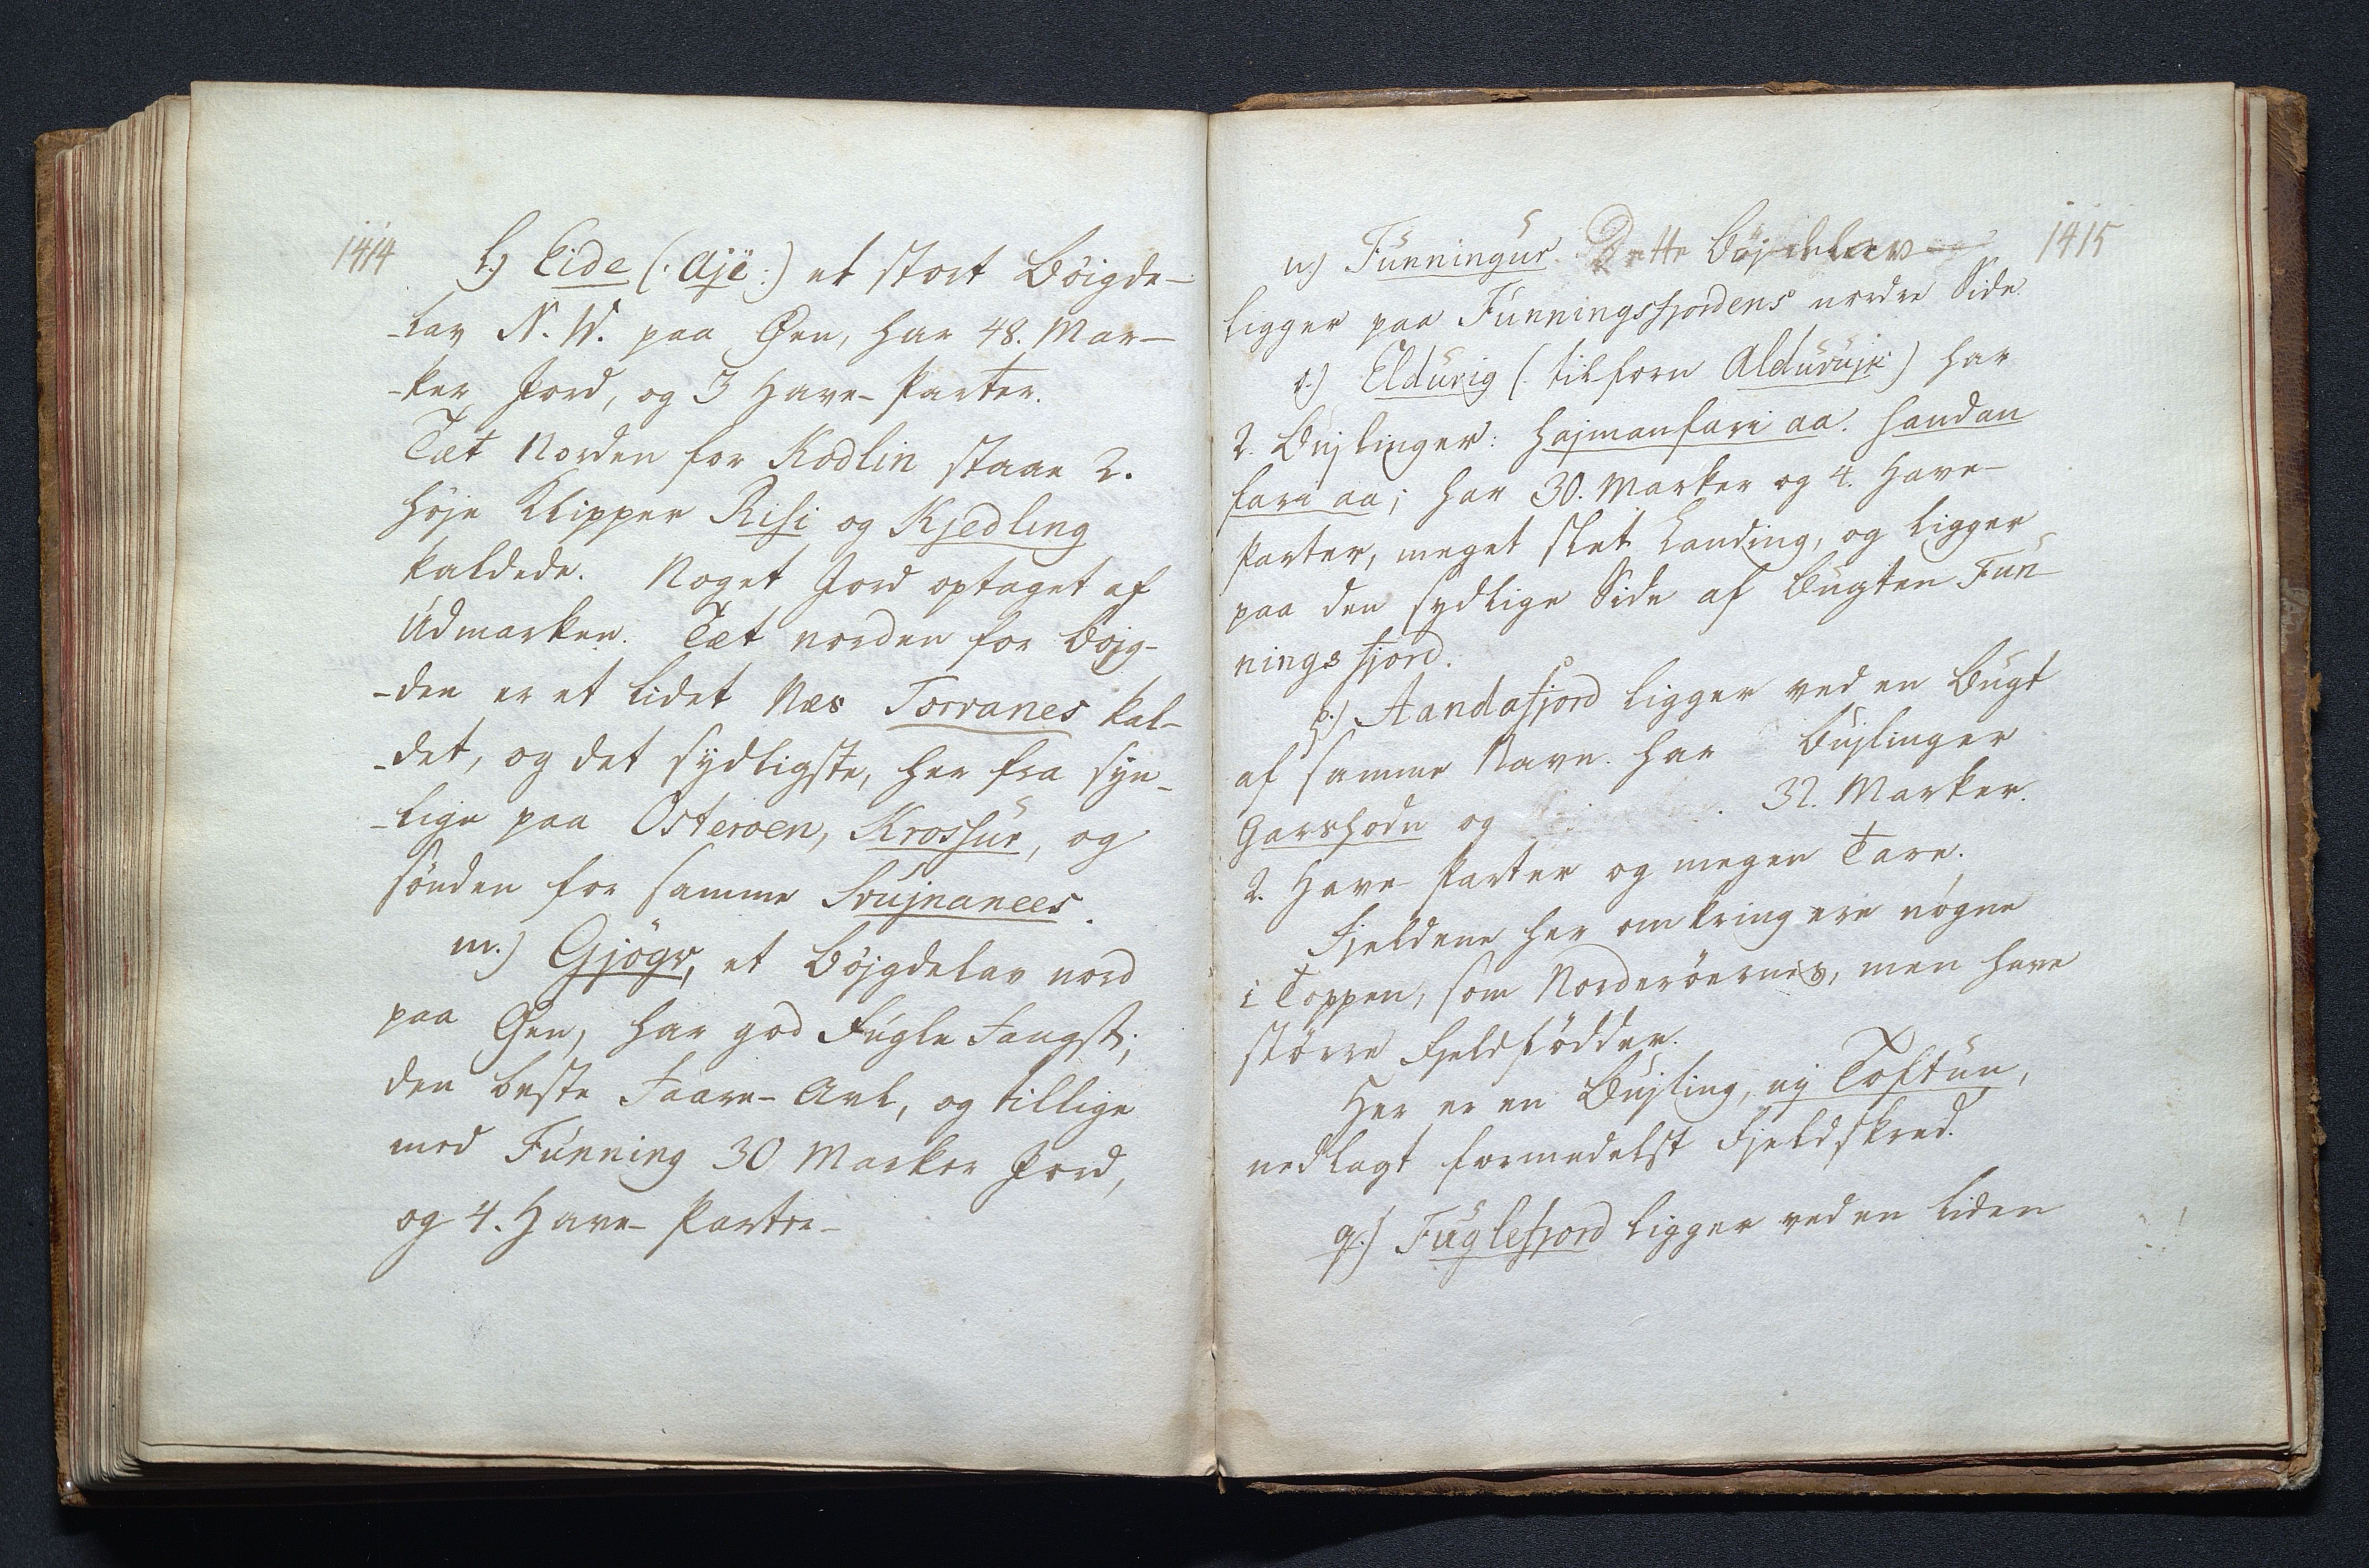 1414
l.) Eide (: Aje :) et stort Böigde-
-lav N. W. paa Øen, har 48. Mar-
-ker Jord, og 3 Have-Parter.
Tæt Norden for Kodlin staae 2.
höje Klipper Risi og Kjedling
kaldede. Noget Jord optaget af
Udmarken. Tæt norden for Bojg-
-den er et lidet Næs Torranes kal-
-det, og det sydligste, her fra syn-
-lige paa Osteroen, Krossur, og
sönden for samme Svujnanees.
m.) Gjögv, et Böjgdelav nord
paa Øen, har god Fugle Fangst;
den beste Faare-Avl, og tillige
med Funning 30 Marker Jord,
og 4. Have-Parter-
1415
n.) Funningur. Dette Böjdelav
ligger paa Funningsfjordens nordre Side
o.) Eldurig (tilforn Alduruje) har
2. Bujlinger: Hajmanfari aa. Handan
fari aa; har 30. Marker og 4. Have-
Parter, meget slet Landing, og ligger
paa den sydlige Side af Bugten Fun-
nings fjord.
p.) Aandafjord ligger ved en Bugt
af samme Navn. har Bujlinger
Garshodn og 32. Marker.
2. Have Parter og megen Tare.
Fjeldene her omkring ere nögne
i Toppen, som Norderöernes, men have
större Fjeldfödder.
Her er en Bujling, uj Toftun,
nedlagt formedelst Fjeldskred.
q.) Fuglefjord ligger ved en liden